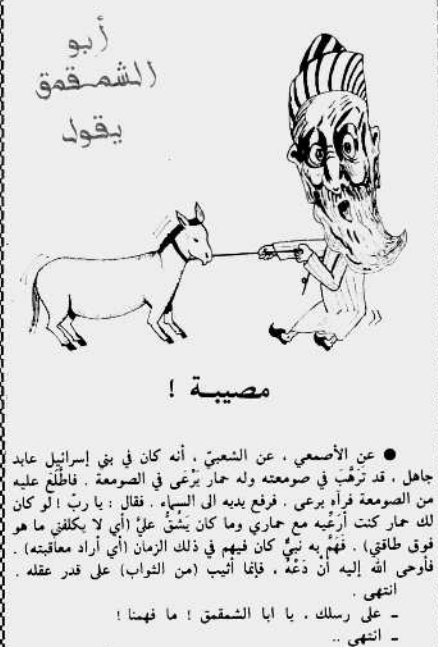 أبو
الشمقمق
يقول
مصيبة !
● عن الأصمعي ، عن الشعبيّ ، أنه كان في بني إسرائيل عابد
جاهل ، قد ترهّبَ في صومعته وله حمار يَرْعَى في الصومعة . فاطَّلَعَ عليه
من الصومعة فرآه يرعى . فرفع يديه الى السماء . فقال : يا ربّ ! لو كان
لك حمار كنت أرَعْيه مع حماري وما كان يَشُقّ عليّ (أي لا يكلفني ما هو
فوق طاقتي) . فَهَمَّ به نبيٌّ كان فيهم في ذلك الزمان (أي أراد معاقبته) .
فأوحى الله إليه أن دَعْهُ ، فإنما أثيب (من الثواب) على قدر عقله .
انتهى .
ـ على رسلك ، يا ابا الشمقمق ! ما فهمنا !
ـ انتهى ..